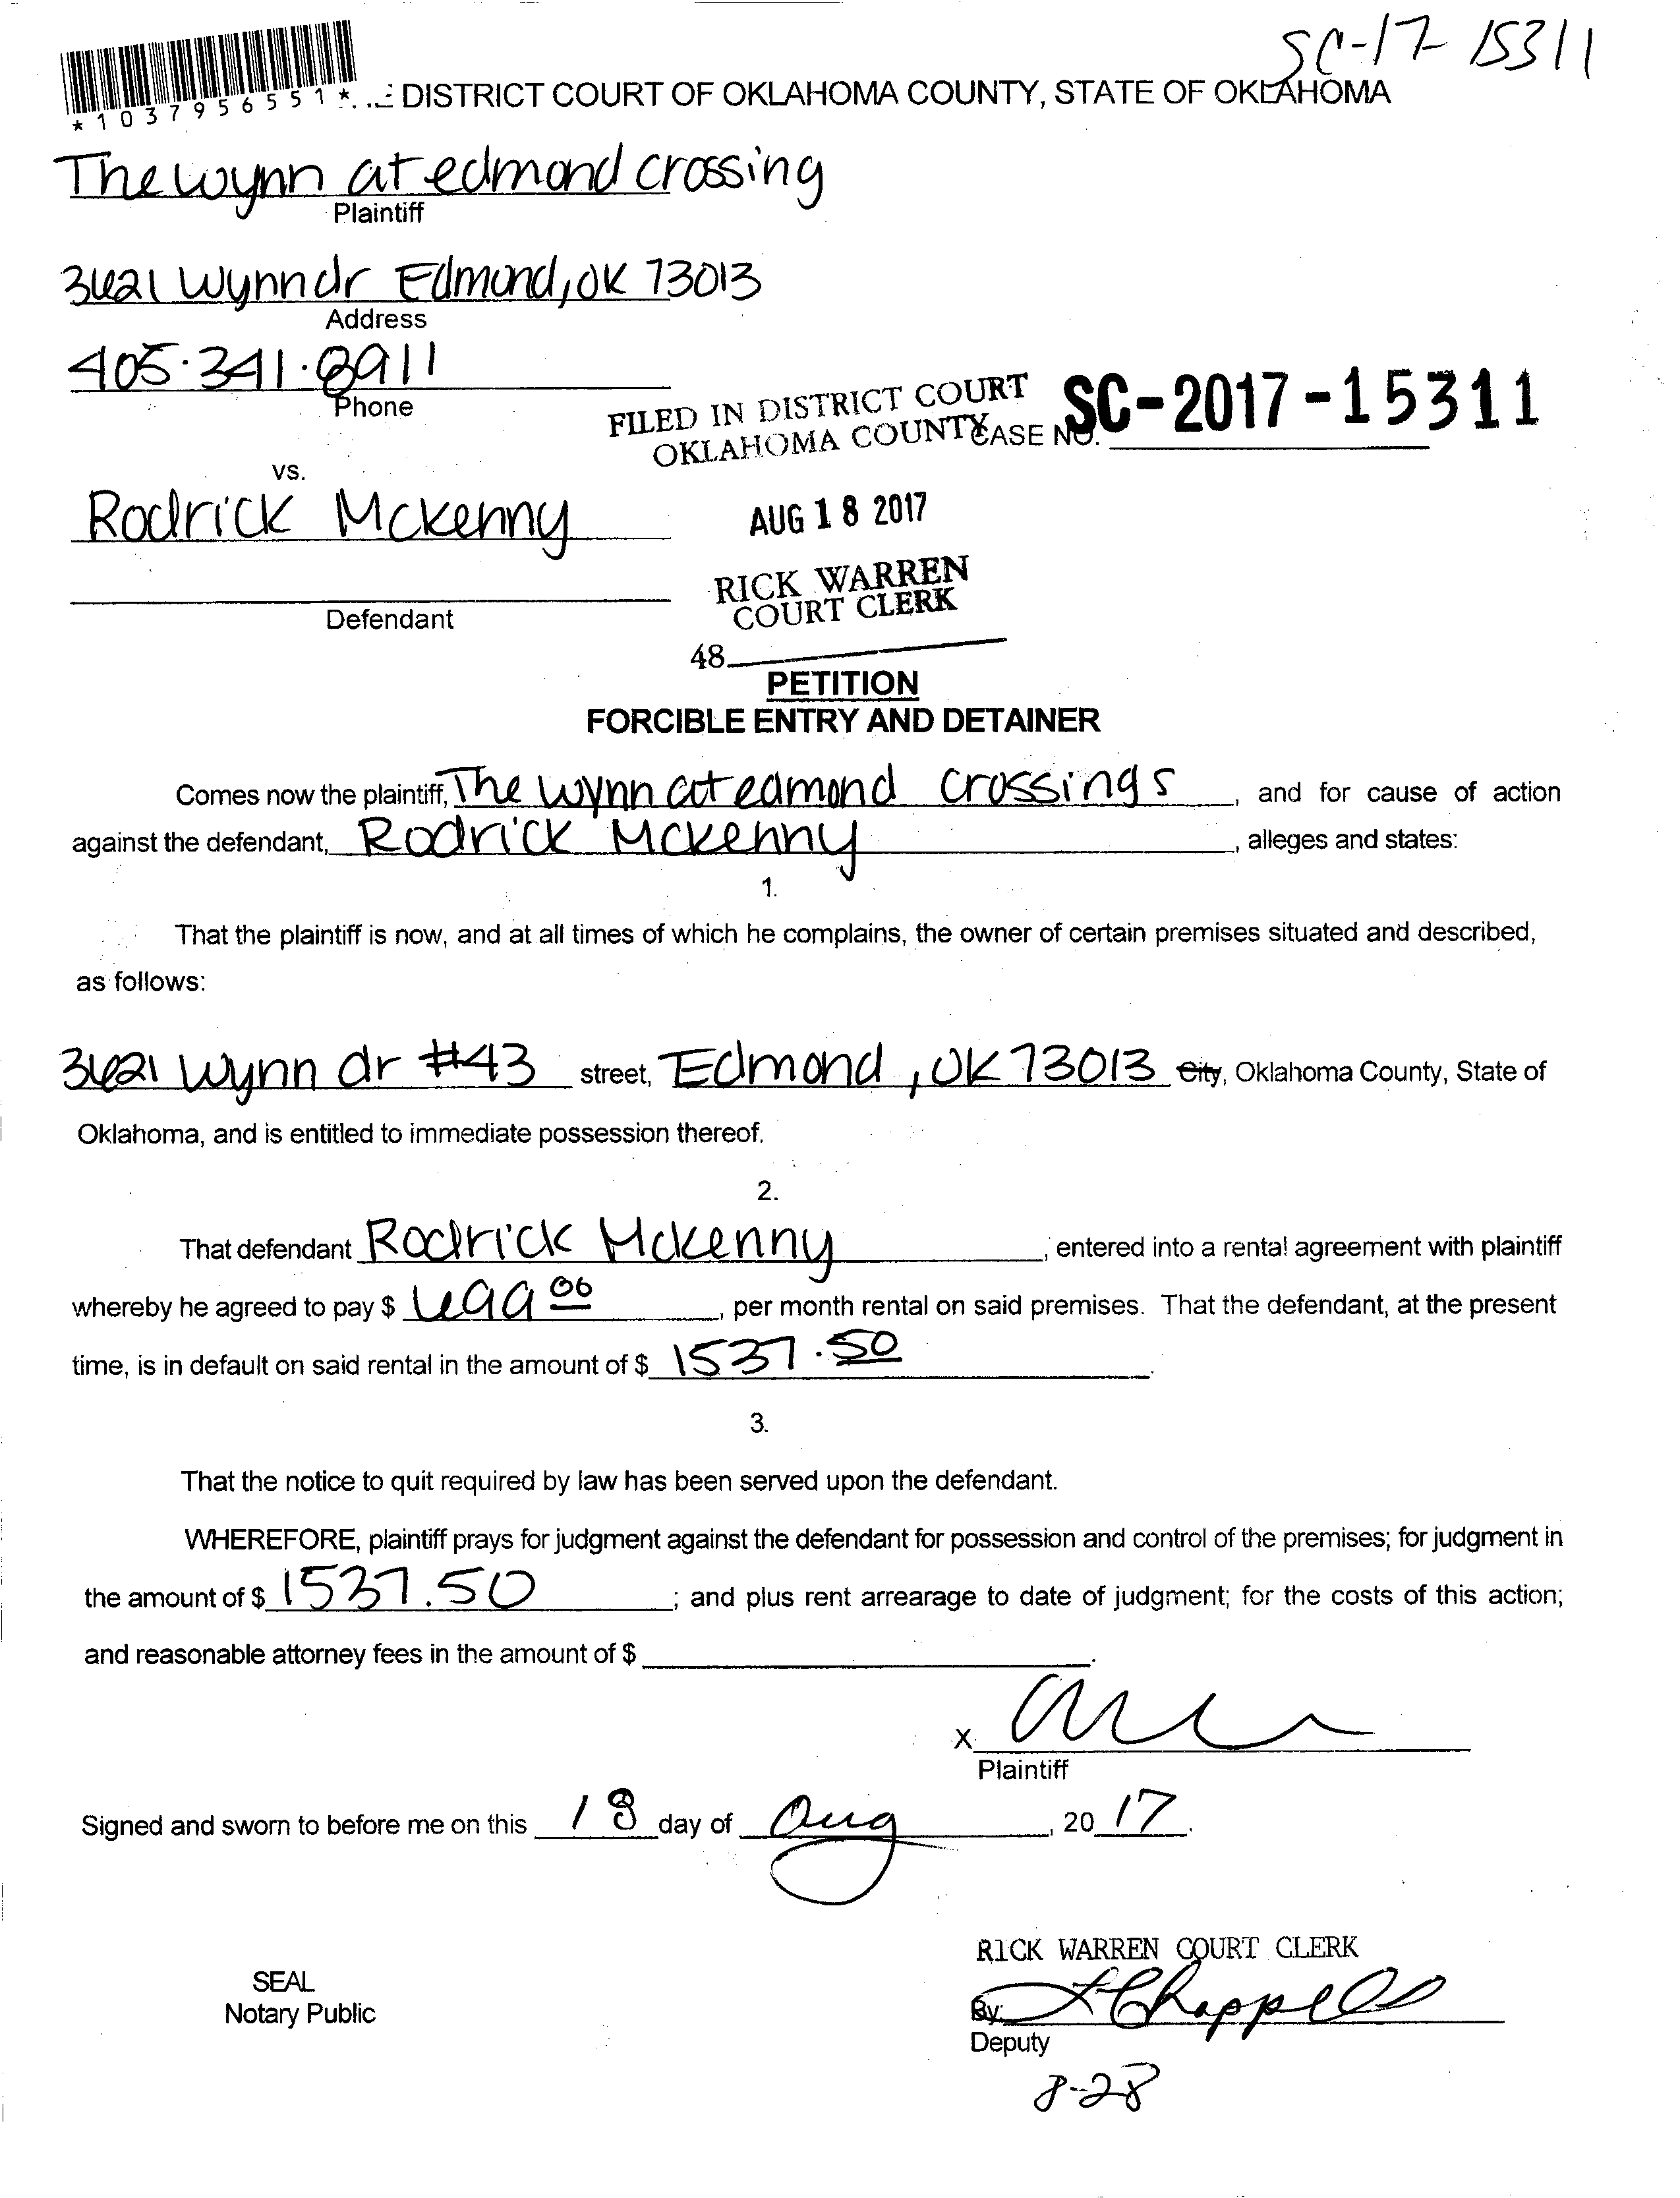 SC-17-15311
*1037956551*
DISTRICT COURT OF OKLAHOMA COUNTY, STATE OF OKLAHOMA
The wynn at edmond crossing
Plaintiff
3621 Wynn dr Edmond, OK 73013
Address
405.341.8911
Phone
FILED IN DISTRICT COURT
OKLAHOMA COUNTY
CASE NO. SC-2017-15311
vs.
Rodrick Mckenny
AUG 18 2017
RICK WARREN
COURT CLERK
Defendant
48
PETITION
FORCIBLE ENTRY AND DETAINER
Comes now the plaintiff, The wynn at edmond crossings, and for cause of action
against the defendant, Rodrick Mckenny, alleges and states:
1.
That the plaintiff is now, and at all times of which he complains, the owner of certain premises situated and described,
as follows:
3621 Wynn dr #43 street, Edmond, OK 73013 City, Oklahoma County, State of
Oklahoma, and is entitled to immediate possession thereof.
2.
That defendant Rodrick Mckenny, entered into a rental agreement with plaintiff
whereby he agreed to pay $ 699 00, per month rental on said premises. That the defendant, at the present
time, is in default on said rental in the amount of $ 1537.50.
3.
That the notice to quit required by law has been served upon the defendant.
WHEREFORE, plaintiff prays for judgment against the defendant for possession and control of the premises; for judgment in
the amount of $ 1537.50; and plus rent arrearage to date of judgment; for the costs of this action;
and reasonable attorney fees in the amount of $ .
X
Plaintiff
Signed and sworn to before me on this 18 day of Aug, 2017.
RICK WARREN COURT CLERK
SEAL
Notary Public
By: Chappell
Deputy
8-28